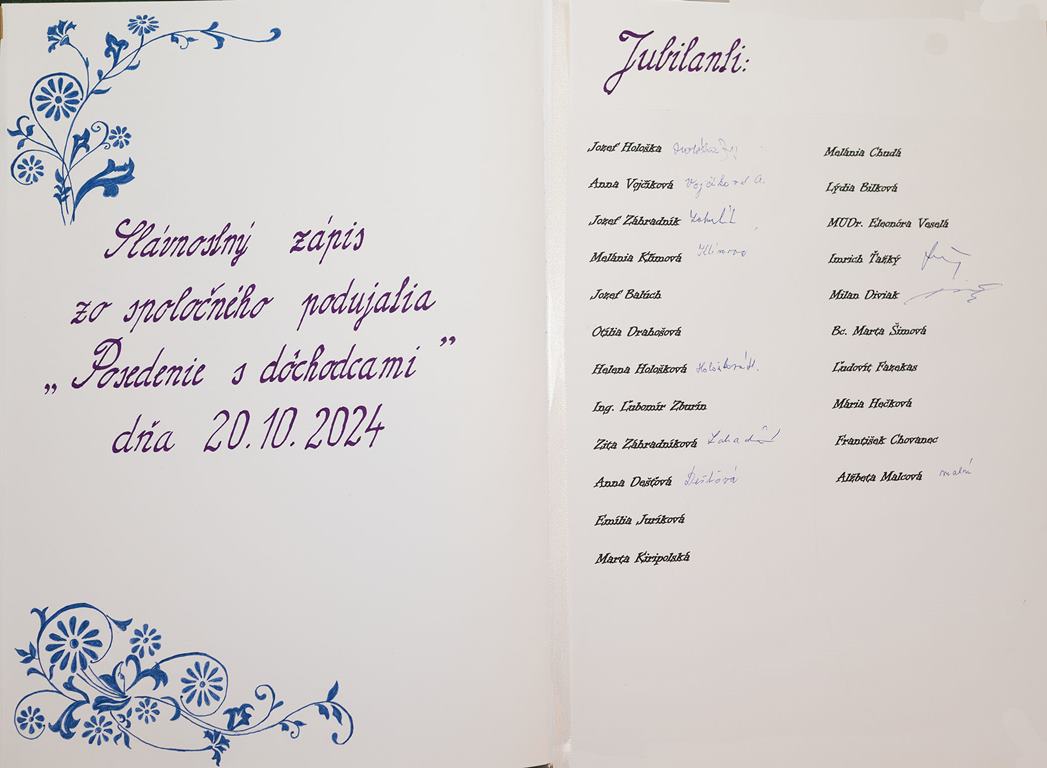 Slávnostný zápis
zo spoločného podujatia
„Posedenie s dôchodcami”
dňa 20.10.2024
Jubilanti:
Jozef Hološka
Anna Vojčíková Vojčíková A.
Jozef Záhradník
Melánia Klímová Klímová
Jozef Balúch
Otília Drahošová
Helena Hološková Hološková H.
Ing. Ľubomír Zburín
Zita Záhradníková
Anna Dešťová Dešťová
Emília Juríková
Marta Kiripolská
Melánia Chudá
Lýdia Bilková
MUDr. Eleonóra Veselá
Imrich Ťažký
Milan Diviak
Bc. Marta Šimová
Ľudovít Fazekas
Mária Hečková
František Chovanec
Alžbeta Malcová